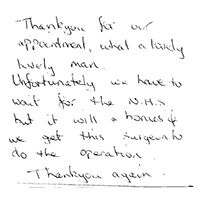 "Thankyou for our
appointment, what a lovely
lovely man.
Unfortunately we have to
wait for the N.H.S.
but it will a bonus if
we get this surgeon to
do the operation.
Thankyou again.